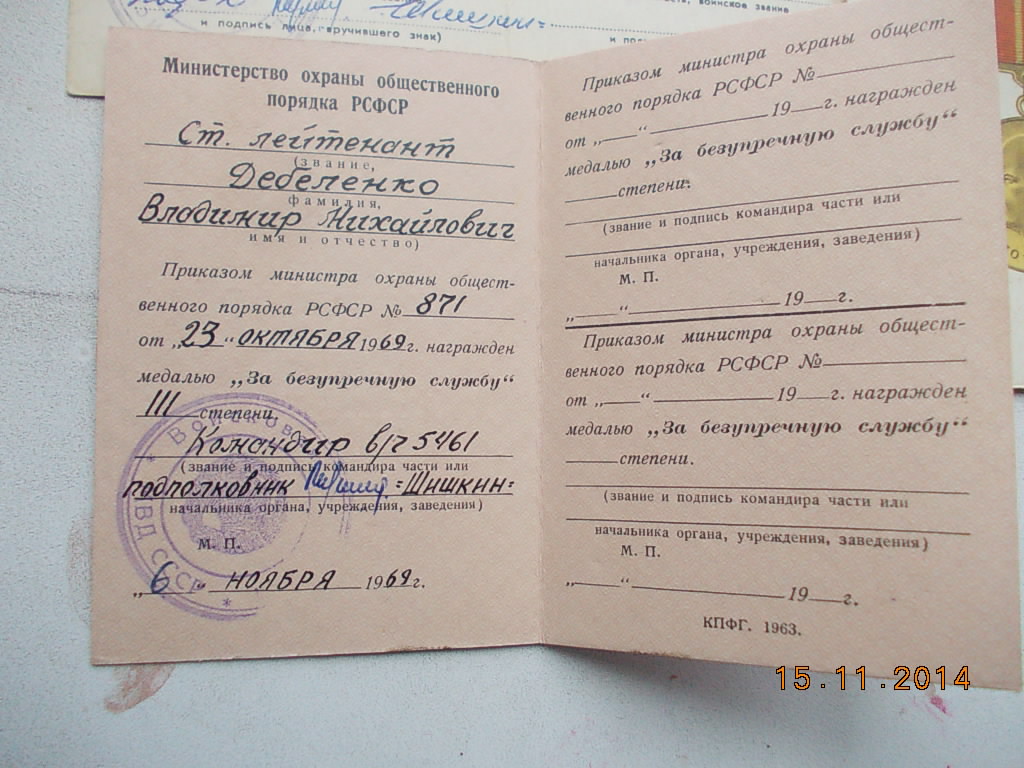 воинское звание
и подпись лица, вручившего знак)
Министерство охраны общественного
порядка РСФСР
Ст. лейтенант
(звание,
Дебеленко
фамилия,
Владимир Михайлович
имя и отчество)
Приказом министра охраны общест-
венного порядка РСФСР № 871
от „23“ октября 1969 г. награжден
медалью „За безупречную службу“
III степени.
Командир в/ч 5461
(звание и подпись командира части или
подполковник =Шишкин=
начальника органа, учреждения, заведения)
М. П.
„6“ ноября 1969 г.
МВД СССР
Приказом министра охраны общест-
венного порядка РСФСР №
от „ “ 19 г. награжден
медалью „За безупречную службу“
степени.
(звание и подпись командира части или
начальника органа, учреждения, заведения)
М. П.
„ “ 19 г.
Приказом министра охраны общест-
венного порядка РСФСР №
от „ “ 19 г. награжден
медалью „За безупречную службу“
степени.
(звание и подпись командира части или
начальника органа, учреждения, заведения)
М. П.
„ “ 19 г.
КПФГ. 1963.
15.11.2014